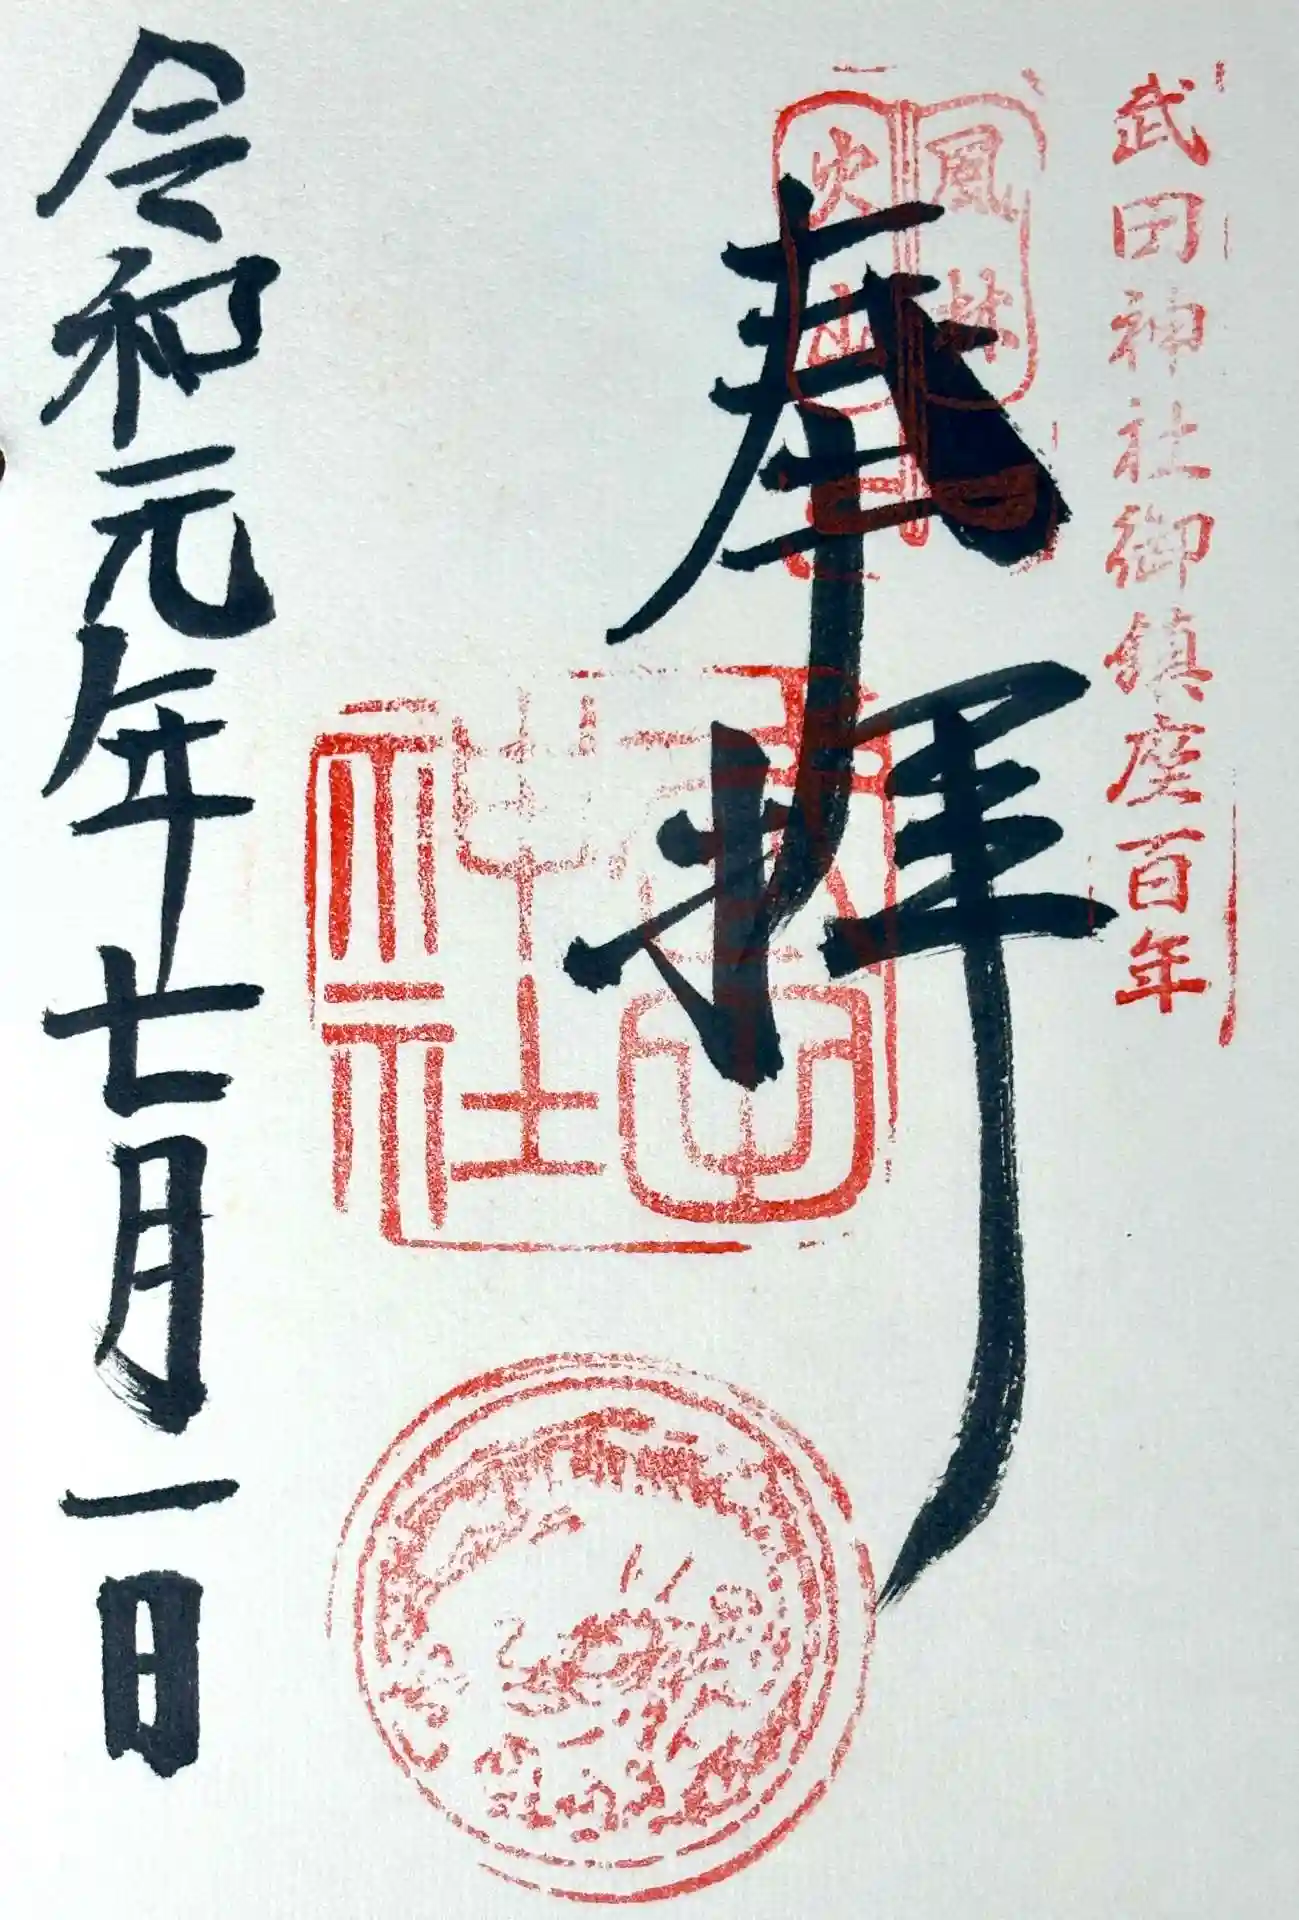 武田神社御鎮座百年
風林
火山
奉拝
武田
神社
令和元年七月一日